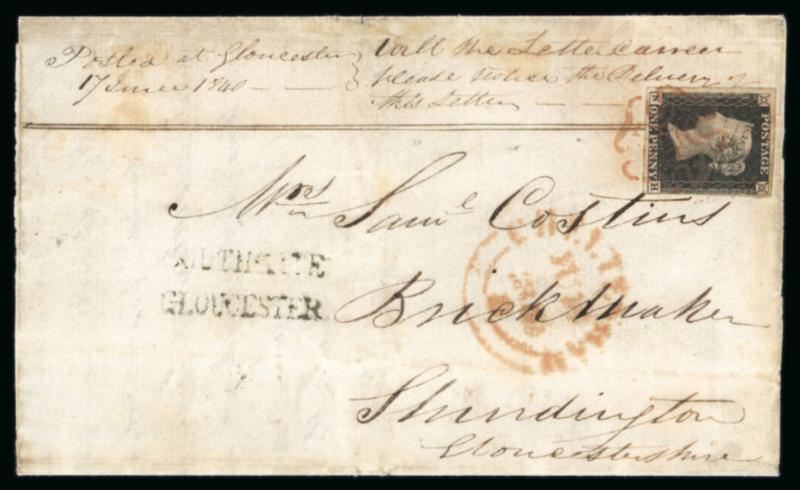 Posted at Gloucester
17 June 1840
will the Letter carrier
please notice the Delivery of
this Letter
POSTAGE
ONE PENNY
H
Mrs Saml Costins
SOUTHGATE
GLOUCESTER
Brick Maker
Shurdington
Gloucestershire